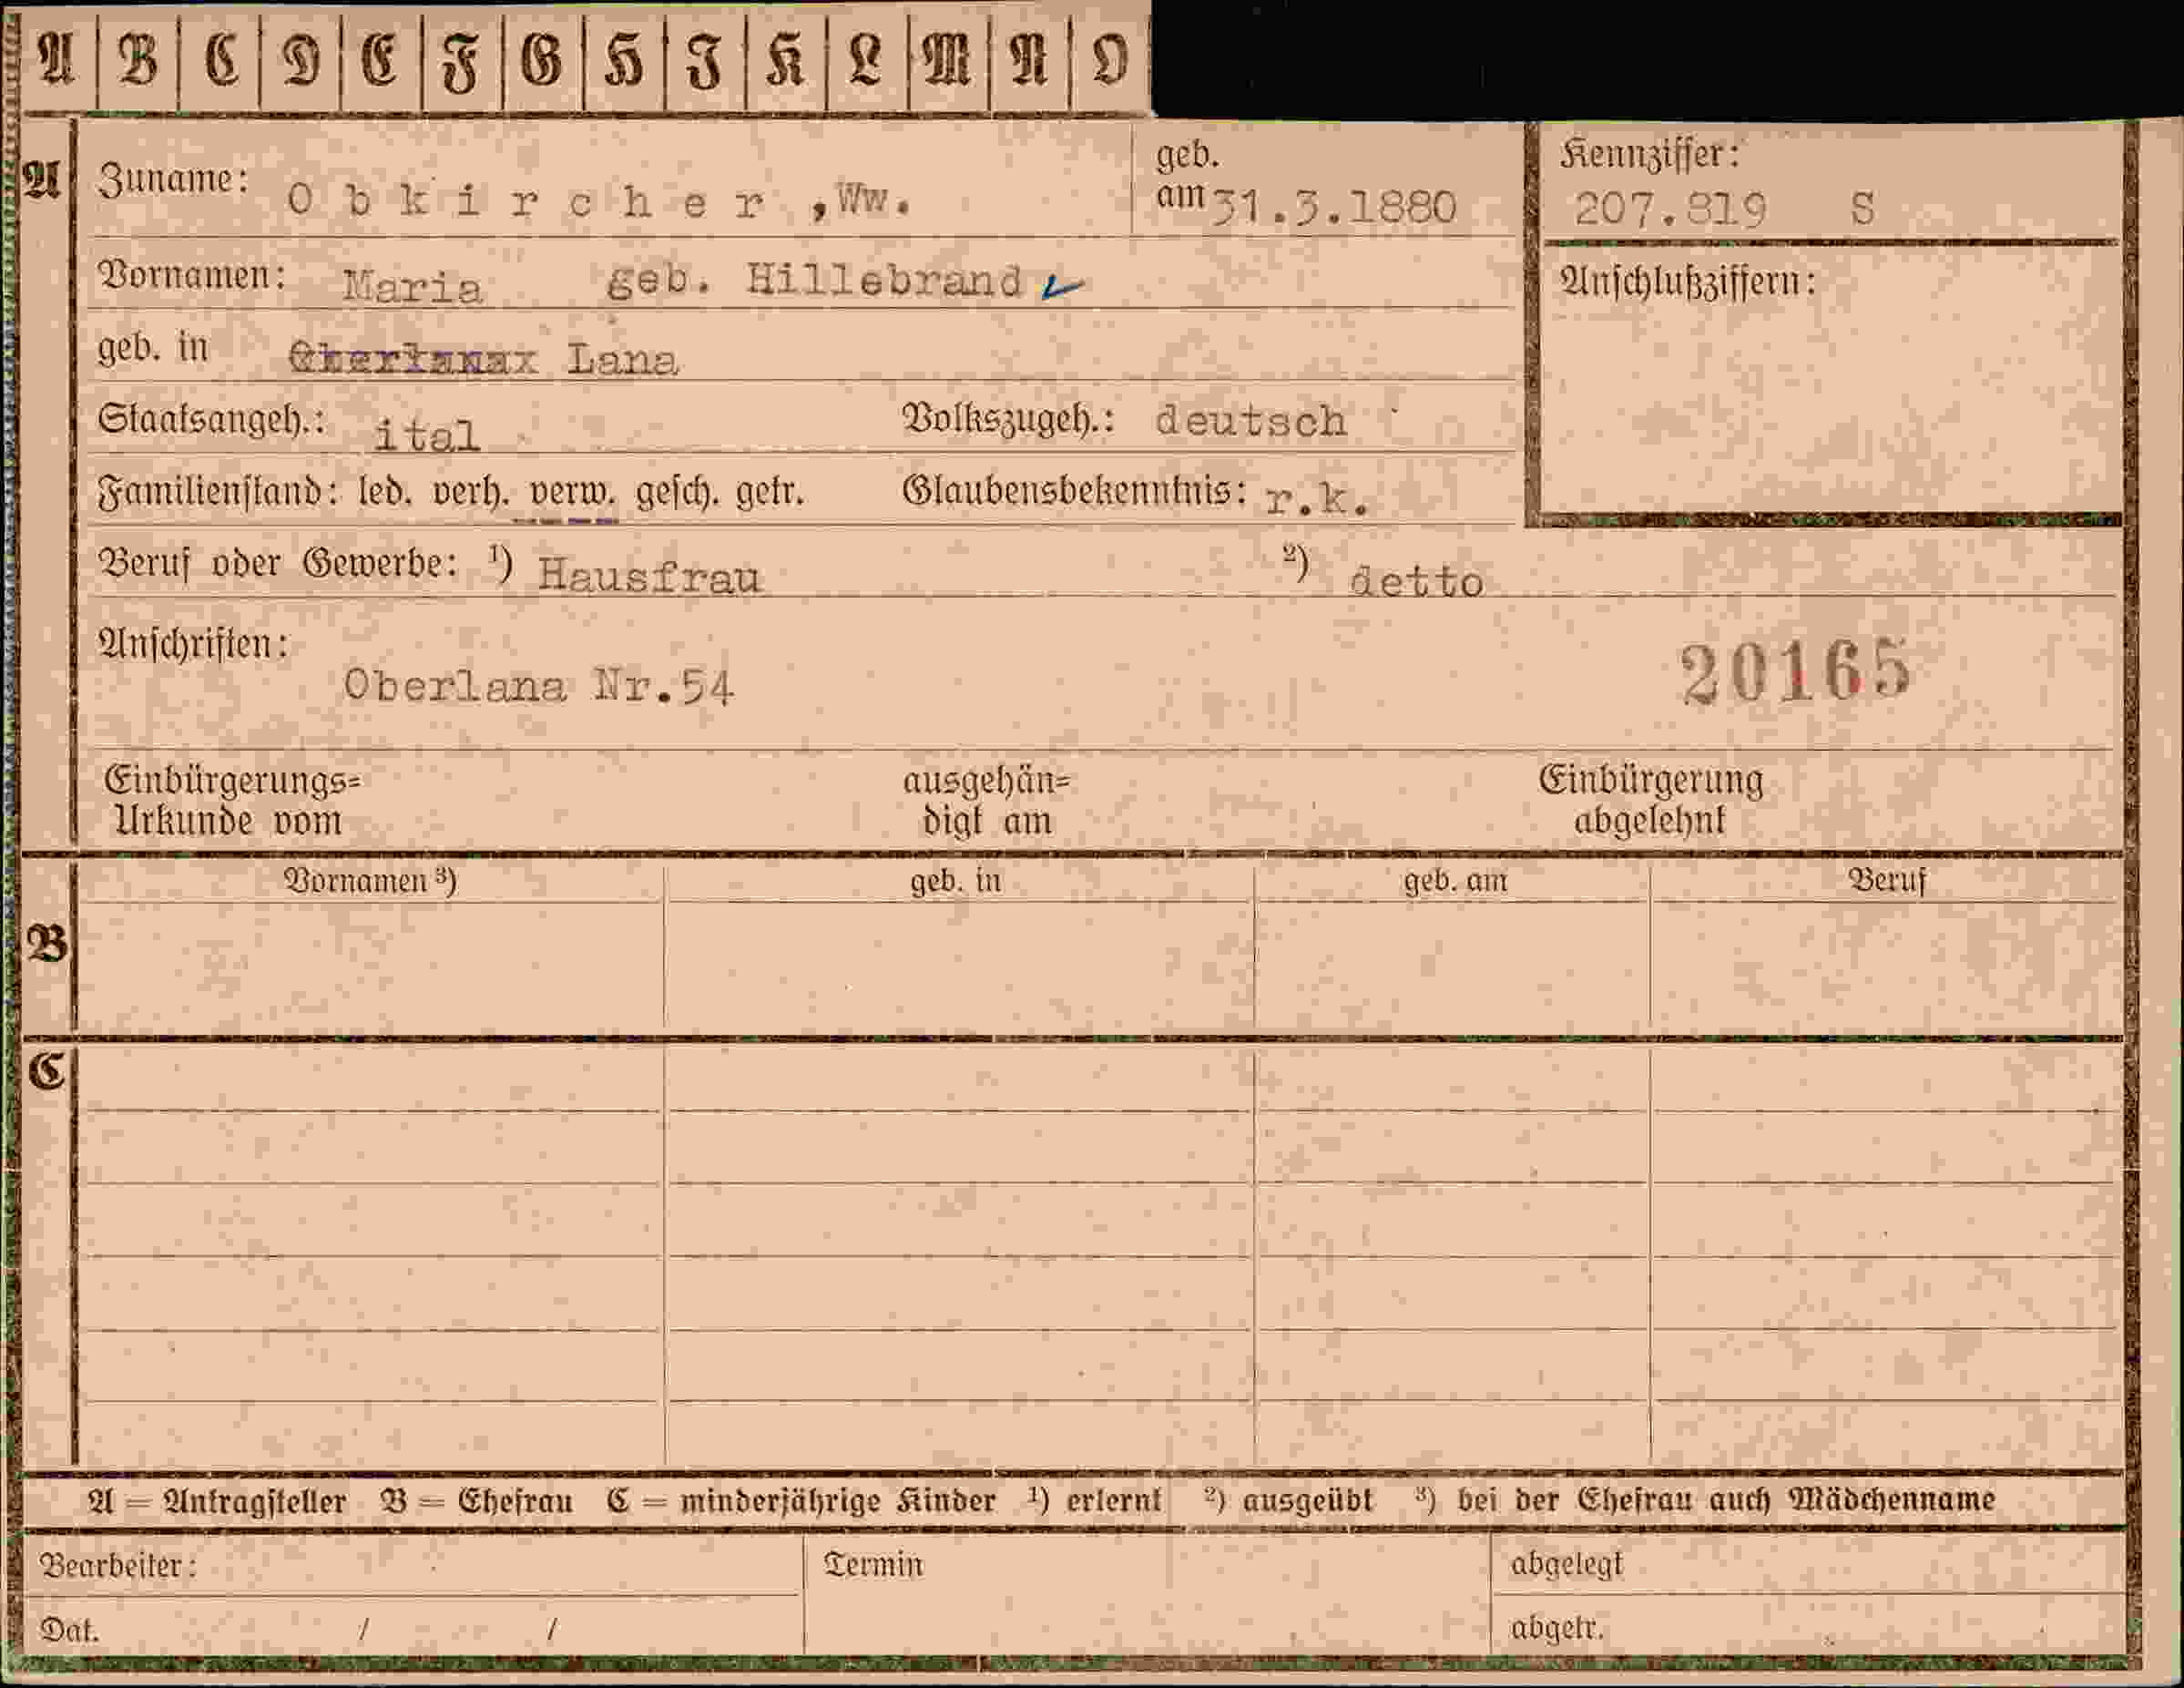 A B C D E F G H I K L M N O
A Zuname: Obkircher, Ww. geb. am 31.3.1880 Kennziffer: 207.819 S
Vornamen: Maria geb. Hillebrand Anschlußziffern:
geb. in Oberlanax Lana
Staatsangeh.: ital Volkszugeh.: deutsch
Familienstand: led. verh. verw. gesch. getr. Glaubensbekenntnis: r.k.
Beruf oder Gewerbe: ¹) Hausfrau ²) detto
Anschriften:
Oberlana Nr.54 20165
Einbürgerungs= ausgehän= Einbürgerung
Urkunde vom digt am abgelehnt
Vornamen ³) geb. in geb. am Beruf
B
C
A = Antragsteller B = Ehefrau C = minderjährige Kinder ¹) erlernt ²) ausgeübt ³) bei der Ehefrau auch Mädchenname
Bearbeiter: Termin abgelegt
Dat. / / abgetr.